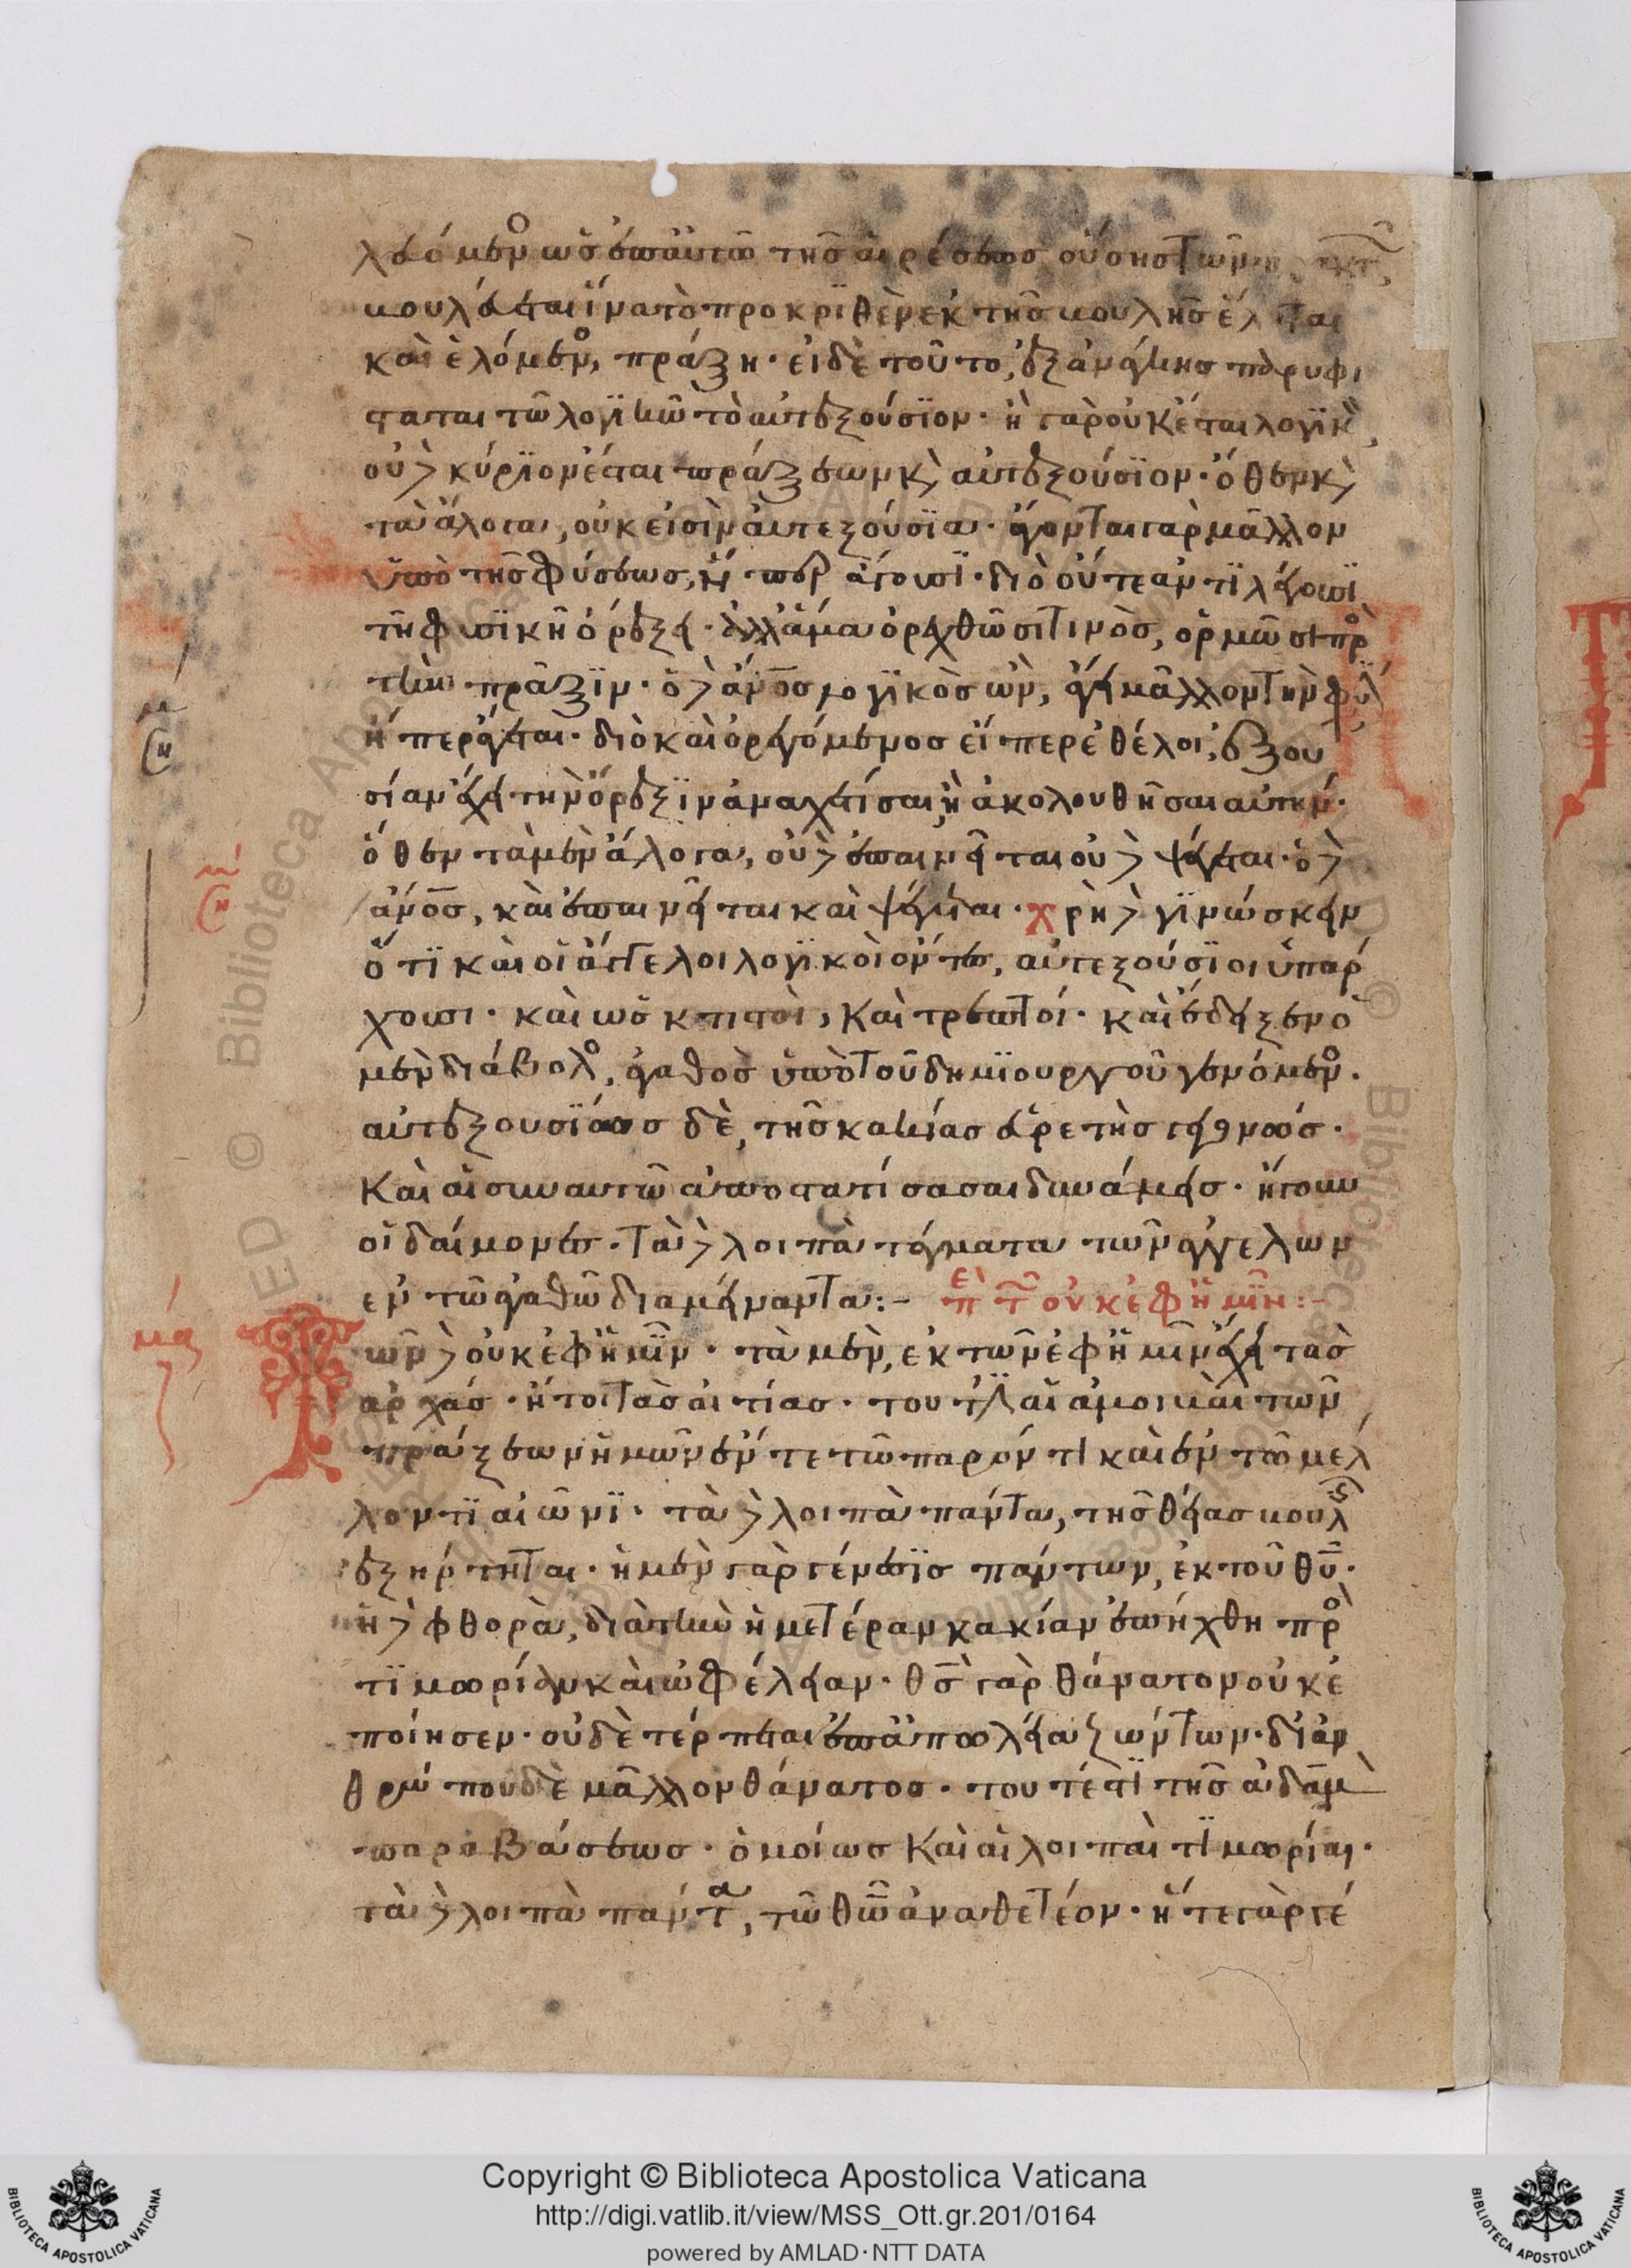 λευόμενος ὡς ἐπ' αὐτῷ τῆς αἱρέσεως οὔσης τῶν πρακτῶν
βουλεύεται ἵνα τὸ προκριθὲν ἐκ τῆς βουλῆς ἕληται
καὶ ἑλόμενος, πράξη· εἰ δὲ τοῦτο, ἐξ ἀνάγκης παρυφί
σταται τῶ λογικῶ τὸ αὐτεξούσιον· ἢ γὰρ οὐκ ἔσται λογικὸν,
οὐδὲ κύριον ἔσται πράξεων καὶ αὐτεξούσιον· ὅθεν καὶ
τὰ ἄλογα, οὐκ εἰσὶν αὐτεξούσια· ἄγονται γὰρ μᾶλλον
ὑπὸ τῆς φύσεως, ἤπερ ἄγουσι· διὸ οὔτε ἀντιλέγουσι
τῆ φυσικῆ ὀρέξει· ἀλλ' ἅμα ὀρεχθῶσί τινὸς, ὁρμῶσι πρὸς
τὴν πρᾶξιν· ὁ δὲ ἄνος λογικὸς ὢν, ἄγει μᾶλλον τὴν φύσιν
ἤπερ ἄγεται· διὸ καὶ ὀρεγόμενος εἴπερ ἐθέλοι, ἐξου
σίαν ἔχει τὴν ὄρεξιν ἀναχαιτίσαι ἢ ἀκολουθῆσαι αὐτῆ·
ὅθεν τὰ μὲν ἄλογα, οὐδὲ ἐπαινεῖται οὐδὲ ψέγεται· ὁ δὲ
ἄνος, καὶ ἐπαινεῖται καὶ ψέγεται· χρὴ δὲ γινώσκειν
ὅτι καὶ οἱ ἄγγελοι λογικοὶ ὄντες, αὐτεξούσιοι ὑπάρ
χουσι· καὶ ὡς κτιστοὶ, καὶ τρεπτοί· καὶ ἔδειξεν ὁ
μὲν διάβολος, ἀγαθὸς ὑπὸ τοῦ δημιουργοῦ γενόμενος·
αὐτεξουσίως δὲ, τῆς κακίας εὑρετὴς γεγονώς·
καὶ αἱ σὺν αὐτῶ ἀποστατήσασαι δυνάμεις· ἤγουν
οἱ δαίμονες· τὰ δὲ λοιπὰ τάγματα τῶν ἀγγέλων
ἐν τῶ ἀγαθῶ διαμείναντα:– περὶ τῶν οὐκ ἐφ' ἡμῖν:–
μα
Τῶν δὲ οὐκ ἐφ' ἡμῖν· τὰ μὲν, ἐκ τῶν ἐφ' ἡμῖν ἔχει τὰς
ἀρχάς· ἤτοι τὰς αἰτίας· τουτέστιν αἱ ἀμοιβαὶ τῶν
πράξεων ἡμῶν ἔν τε τῶ παρόντι καὶ ἐν τῶ μέλ
λοντι αἰῶνι· τὰ δὲ λοιπὰ πάντα, τῆς θείας βουλῆς
ἐξήρτηται· ἡ μὲν γὰρ γένεσις πάντων, ἐκ τοῦ θῦ·
ἡ δὲ φθορὰ, διὰ τὴν ἡμετέραν κακίαν ἐπήχθη πρὸς
τιμωρίαν καὶ ὠφέλειαν· θς γὰρ θάνατον οὐκ ἐ
ποίησεν· οὐδὲ τέρπεται ἐπ' ἀπωλεία ζώντων· δι' ἀν
θρώπου δὲ μᾶλλον θάνατος· τουτέστι τῆς ἀδὰμ
παραβάσεως· ὁμοίως καὶ αἱ λοιπαὶ τιμωρίαι·
τὰ δὲ λοιπὰ πάντα, τῶ θῶ ἀναθετέον· ἥτε γὰρ γέ
Copyright © Biblioteca Apostolica Vaticana
http://digi.vatlib.it/view/MSS_Ott.gr.201/0164
powered by AMLAD·NTT DATA
BIBLIOTECA APOSTOLICA VATICANA
BIBLIOTECA APOSTOLICA VATICANA